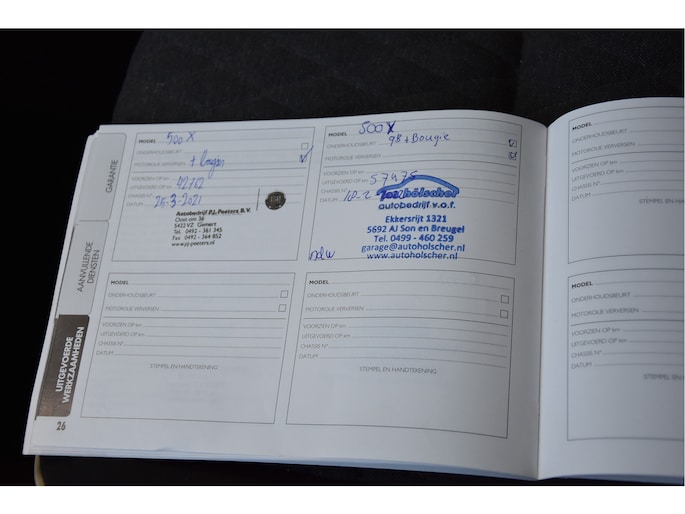 GARANTIE
AANVULLENDE
DIENSTEN
UITGEVOERDE
WERKZAAMHEDEN
26
MODEL 500 X
ONDERHOUDSBEURT
MOTOROLIE VERVERSEN
VOORZIEN OP km
UITGEVOERD OP km
CHASSIS N°
DATUM 26-3-2021
Autobedrijf P.J. Peeters B.V.
5422 VZ Gemert
Tel. 0492 - 361 345
Fax 0492 - 364 852
www.pj-peeters.nl
MODEL 500 X
ONDERHOUDSBEURT 98 + Bougie
MOTOROLIE VERVERSEN
VOORZIEN OP km
UITGEVOERD OP km 57975
CHASSIS N°
DATUM
hölscher
autobedrijf v.o.f.
Ekkersrijt 1321
5692 AJ Son en Breugel
Tel. 0499 - 460 259
garage@autoholscher.nl
www.autoholscher.nl
MODEL
ONDERHOUDSBEURT
MOTOROLIE VERVERSEN
VOORZIEN OP km
UITGEVOERD OP km
CHASSIS N°
DATUM
STEMPEL EN HANDTEKENING
MODEL
ONDERHOUDSBEURT
MOTOROLIE VERVERSEN
VOORZIEN OP km
UITGEVOERD OP km
CHASSIS N°
DATUM
STEMPEL EN HANDTEKENING
MODEL
ONDERHOUDSBEURT
MOTOROLIE VERVERSEN
VOORZIEN OP km
UITGEVOERD OP km
CHASSIS N°
DATUM
MODEL
ONDERHOUDSBEURT
MOTOROLIE VERVERSEN
VOORZIEN OP km
UITGEVOERD OP km
CHASSIS N°
DATUM
STEMPEL EN